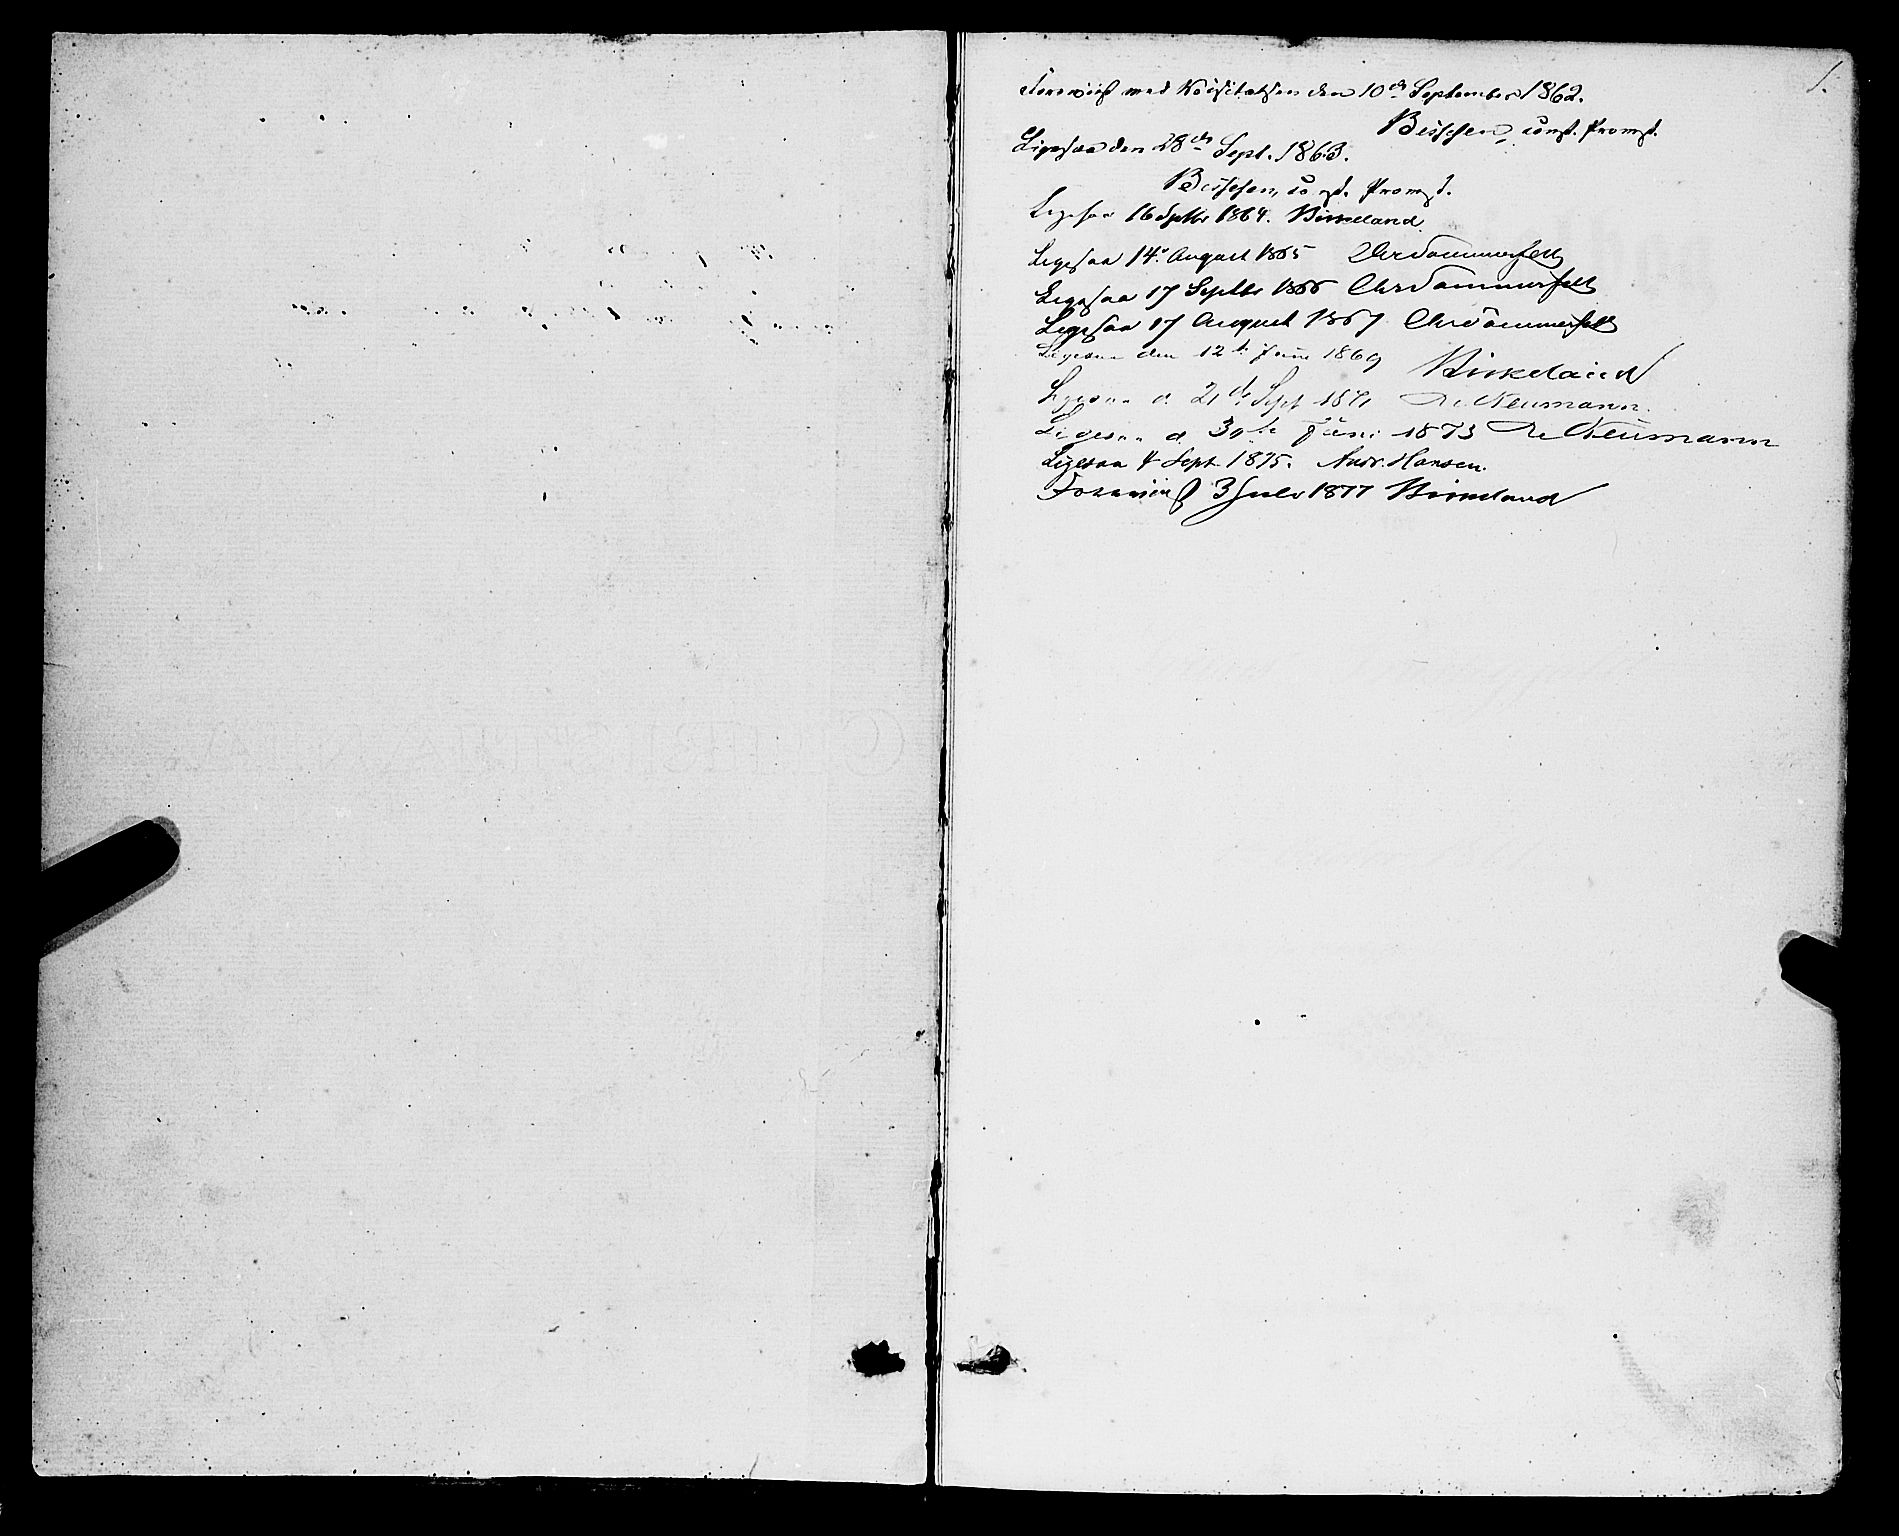 1.
Foreviist ved Visitatsen den 10de September 1862.
const. Provst.
Ligesaa den 28de Sept. 1863.
const. Provst.
Ligesaa 16 Septbr 1864. Birkeland.
Ligesaa 14. August 1865 Chr Sommerfelt
Ligesaa 17 Septbr 1866 Chr Sommerfelt
Ligesaa 17 August 1867 Chr Sommerfelt
Ligesaa den 12te Juni 1869 Birkeland
Ligesaa d. 21de Sept 1871 Neumann.
Ligesaa d. 30te Juni 1873 Neumann
Ligesaa 4 Sept. 1875. Andr. Hansen.
Foreviist 3 Juli 1877 Birkeland
CHRISTIANIA